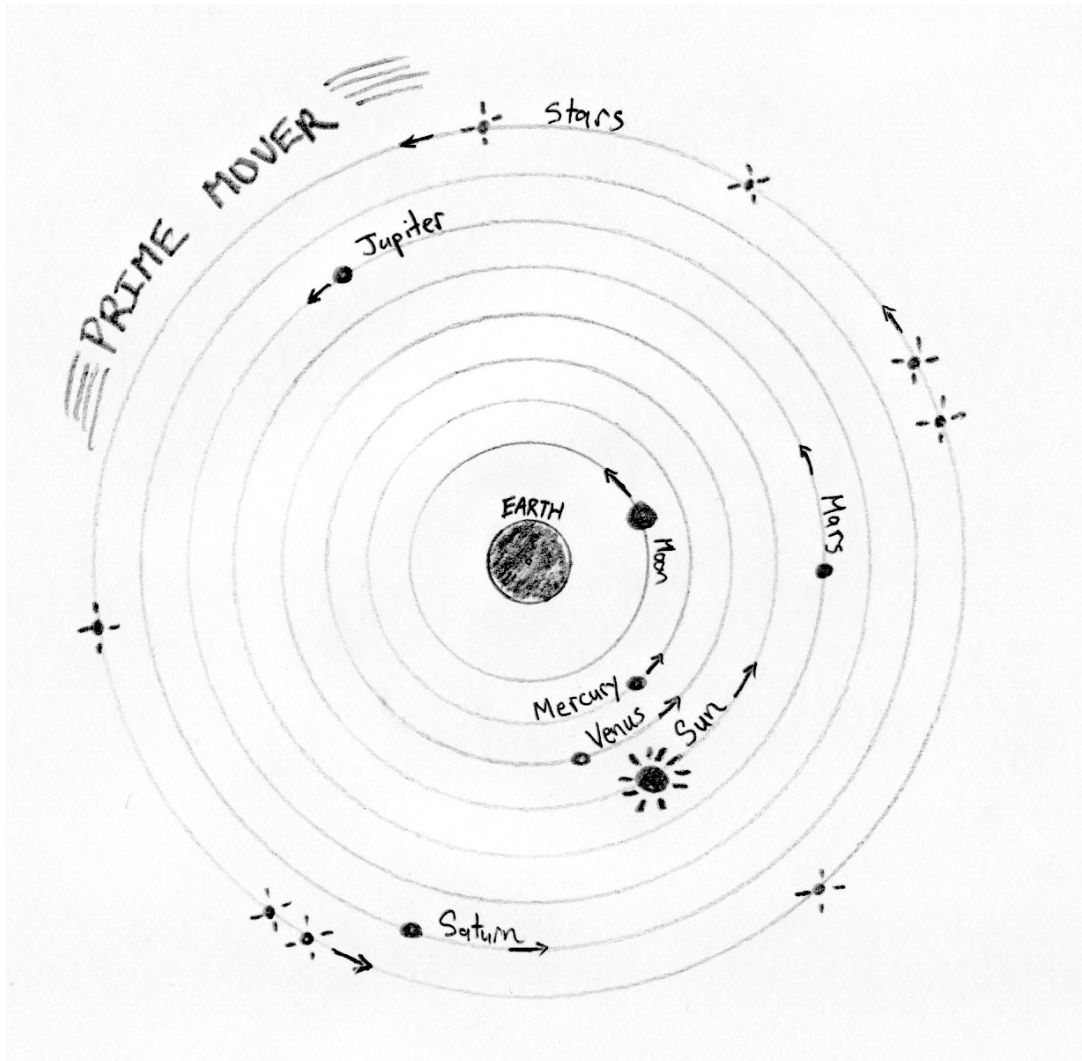 PRIME MOVER
Stars
Jupiter
EARTH
Moon
Mars
Mercury
Venus
Sun
Saturn